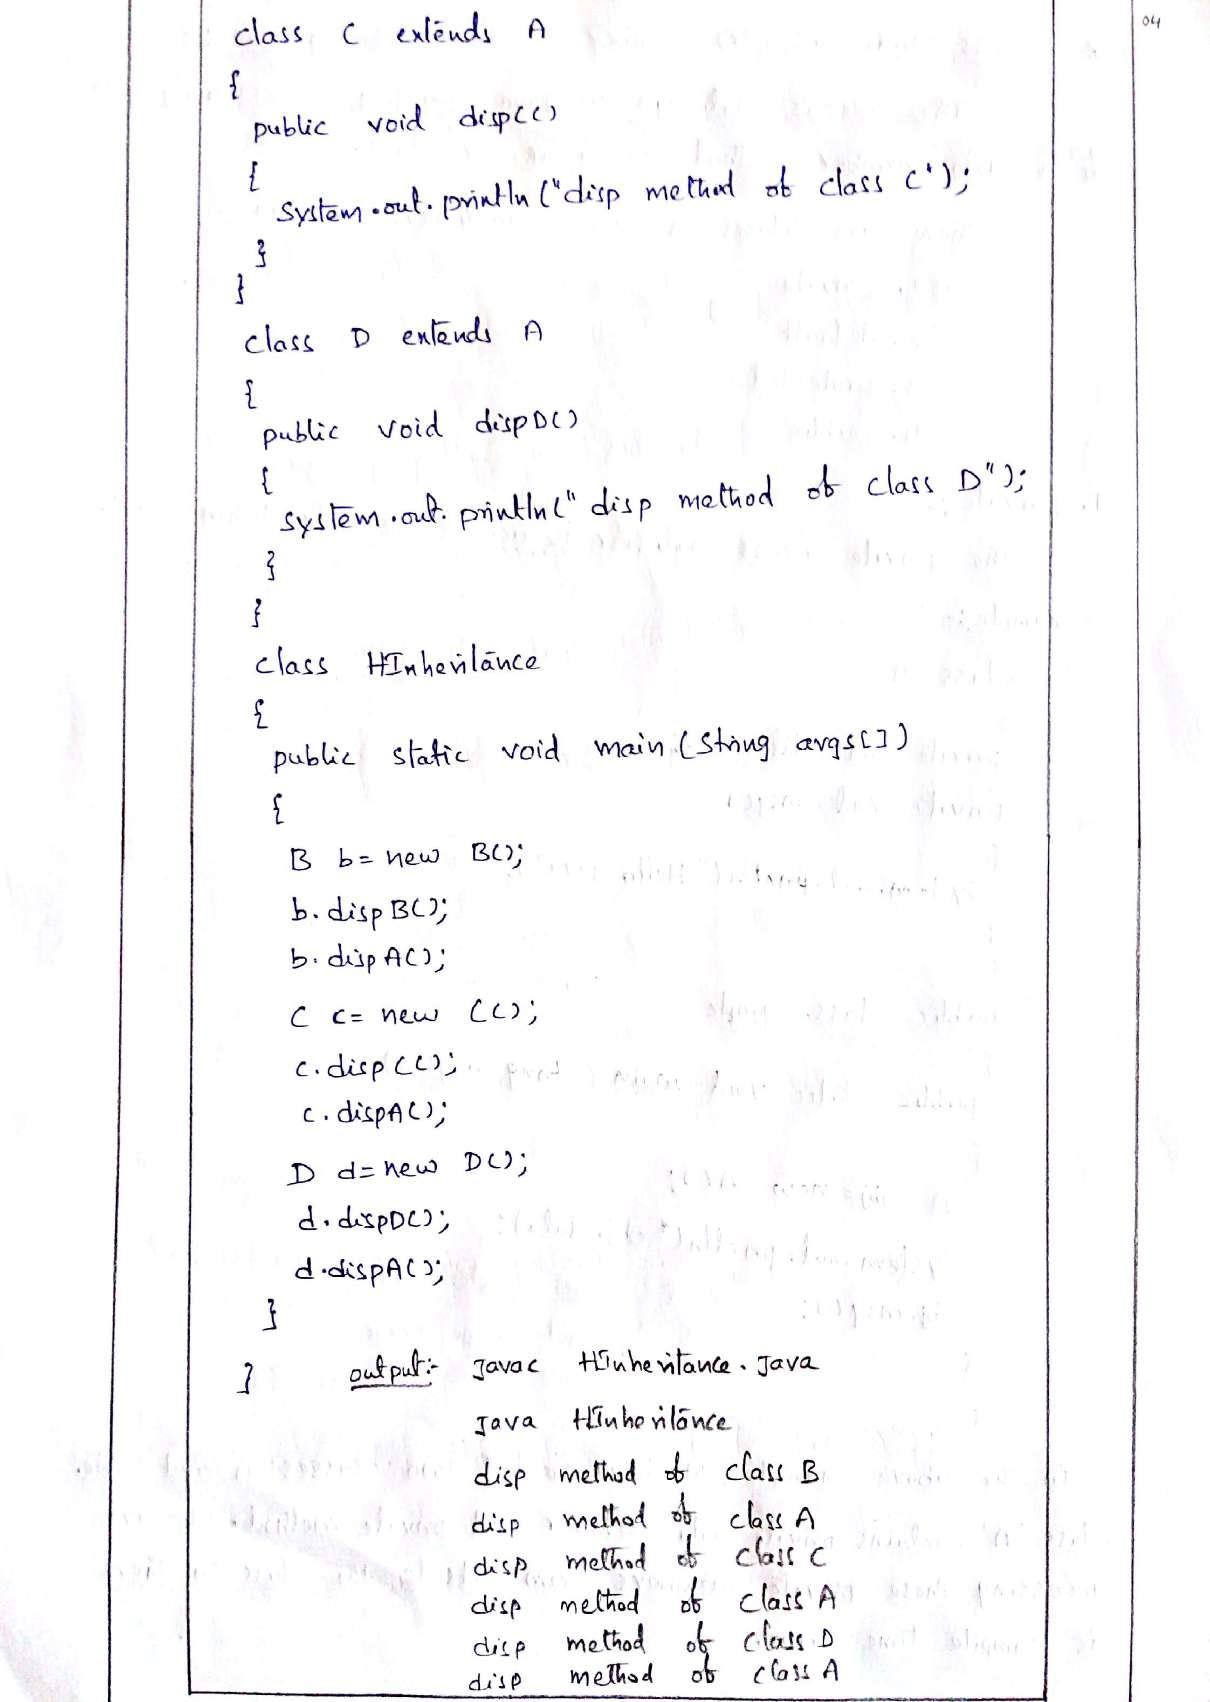 04
class C extends A
{
public void dispC()
{
System.out.println("disp method of class C");
}
}
class D extends A
{
public void dispD()
{
system.out.println("disp method of class D");
}
}
class HInheritance
{
public static void main(String args[])
{
B b= new B();
b.dispB();
b.dispA();
C c= new C();
c.dispC();
c.dispA();
D d= new D();
d.dispD();
d.dispA();
}
} output:- Javac HInheritance.Java
Java HInheritance
disp method of class B
disp method of class A
disp method of class C
disp method of class A
disp method of class D
disp method of class A